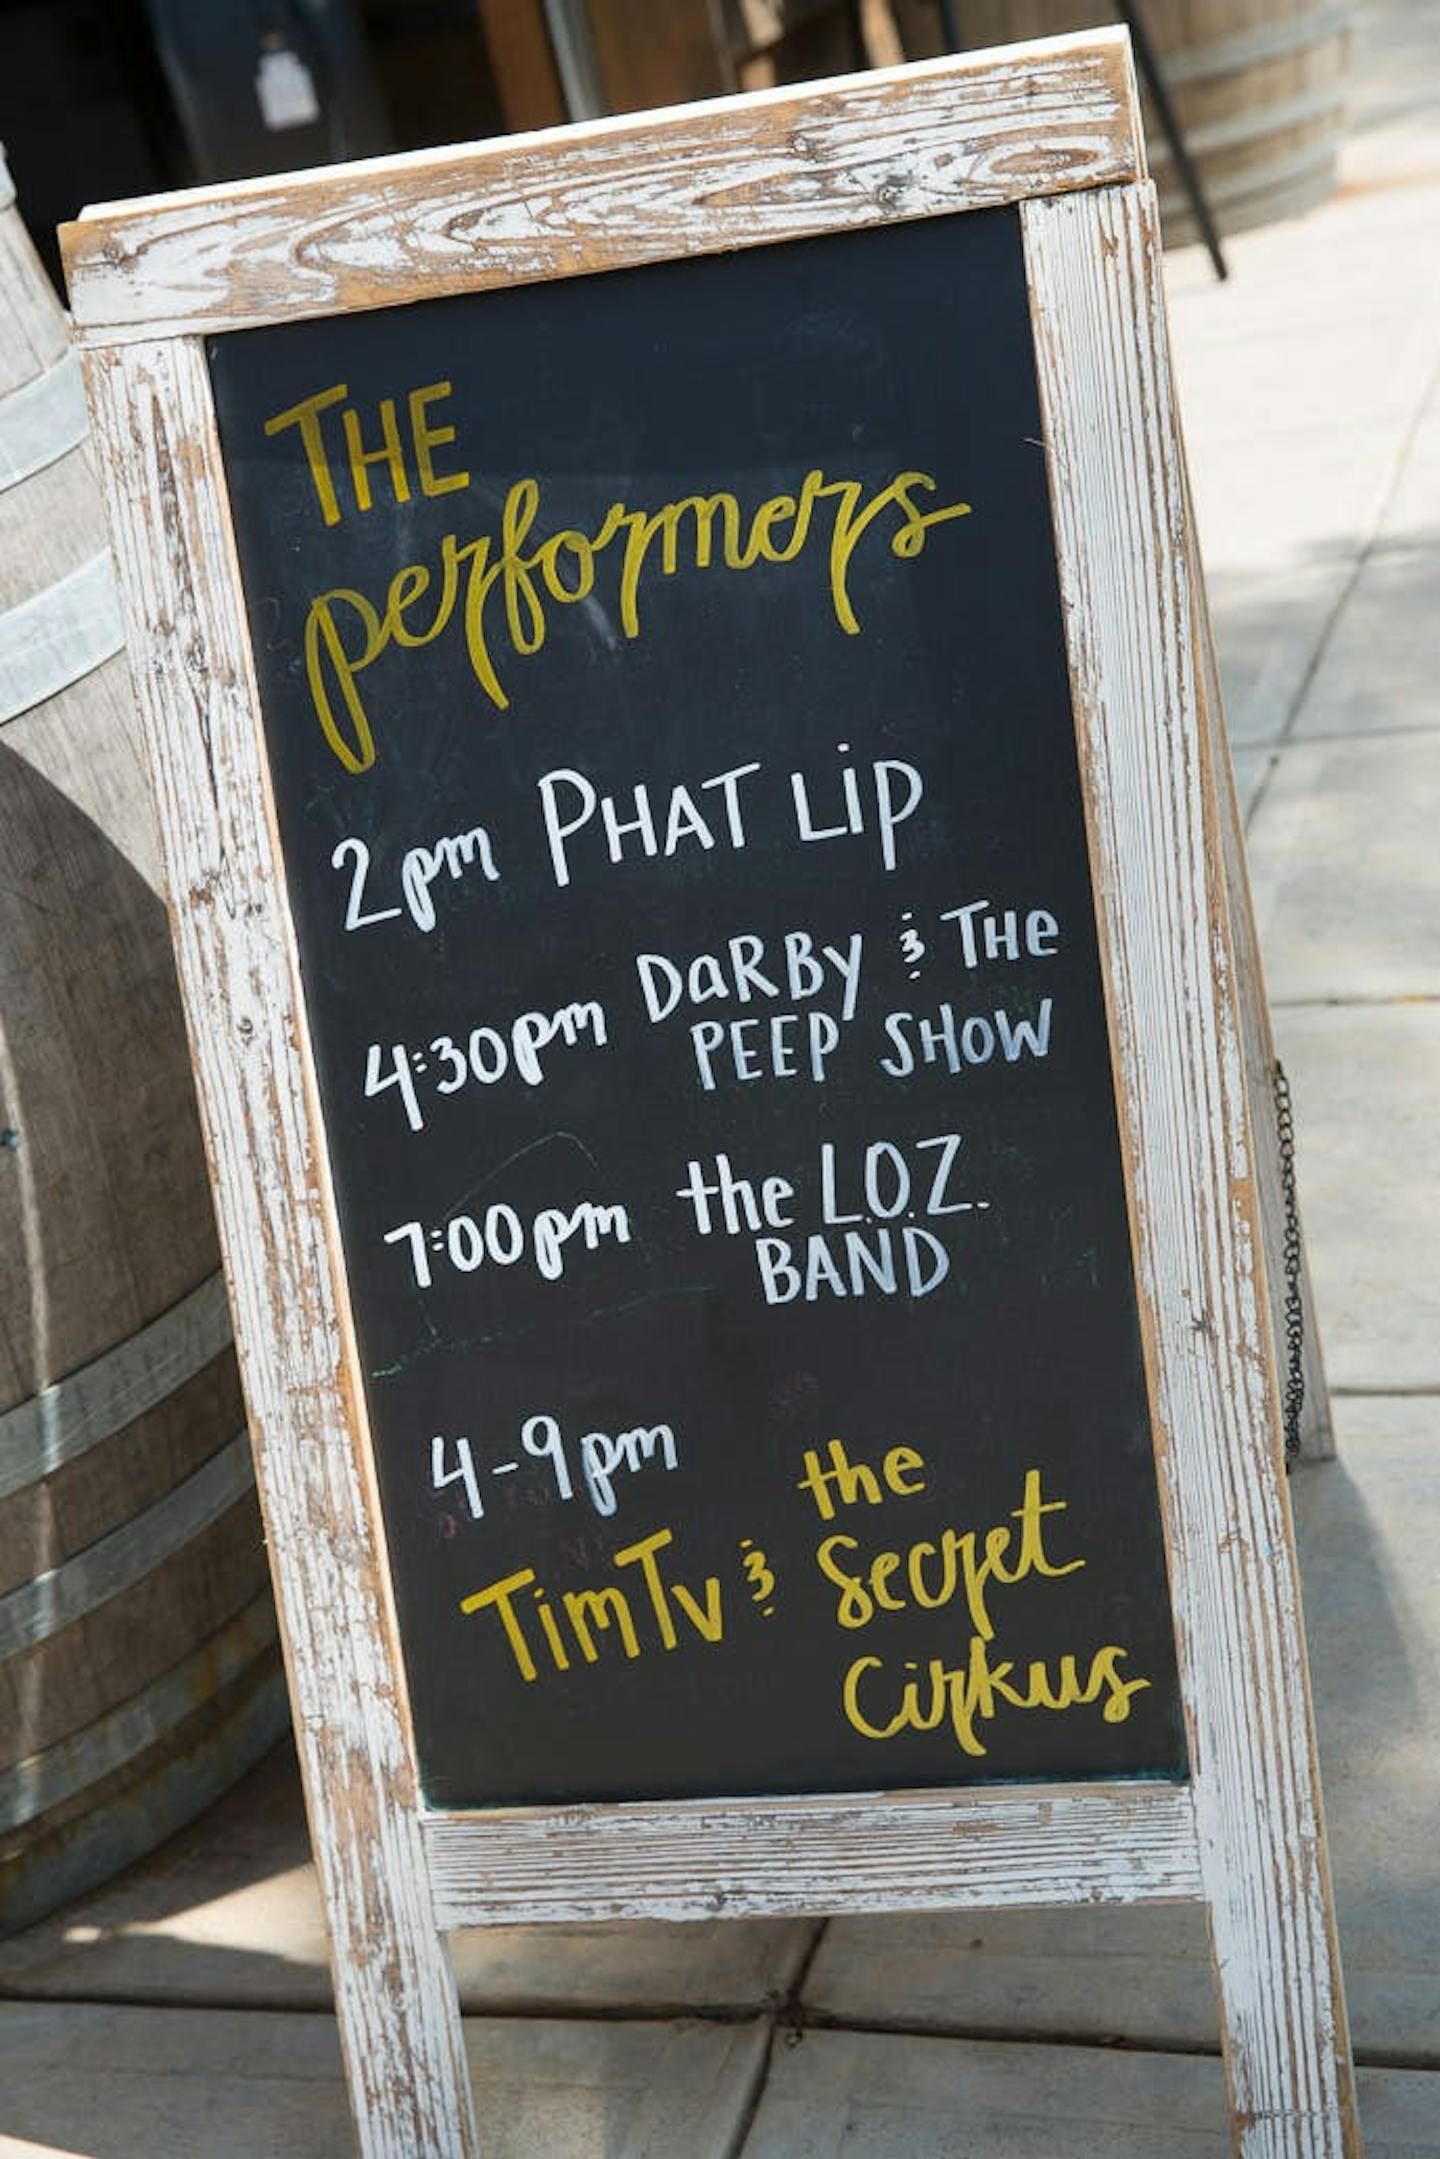 THE
performers
2pm PHAT Lip
4:30pm DaRBy & THe
PEEP SHOW
7:00pm the L.O.Z.
BAND
4-9pm
TimTv & the
Secret
Cirkus